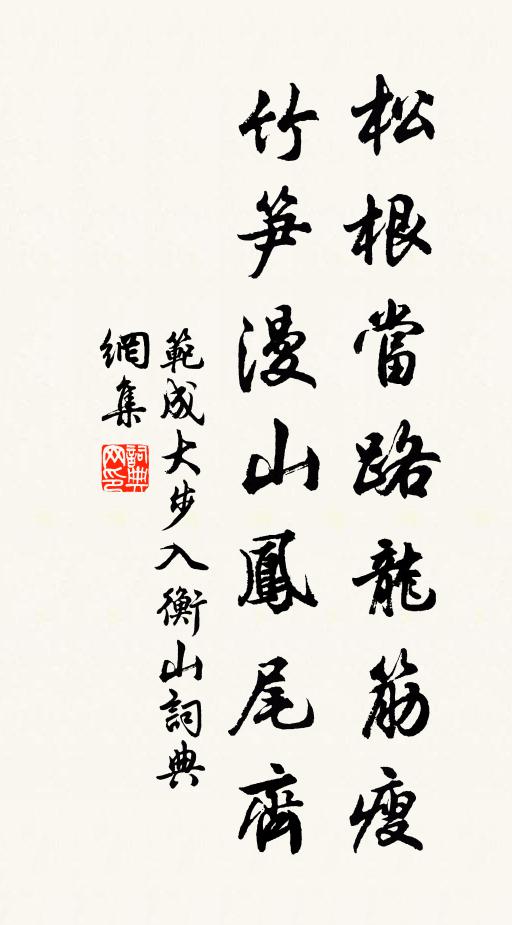 松根當路龍筋瘦
竹笋漫山鳳尾齊
範成大步入衡山詞典
網集
詞典網印